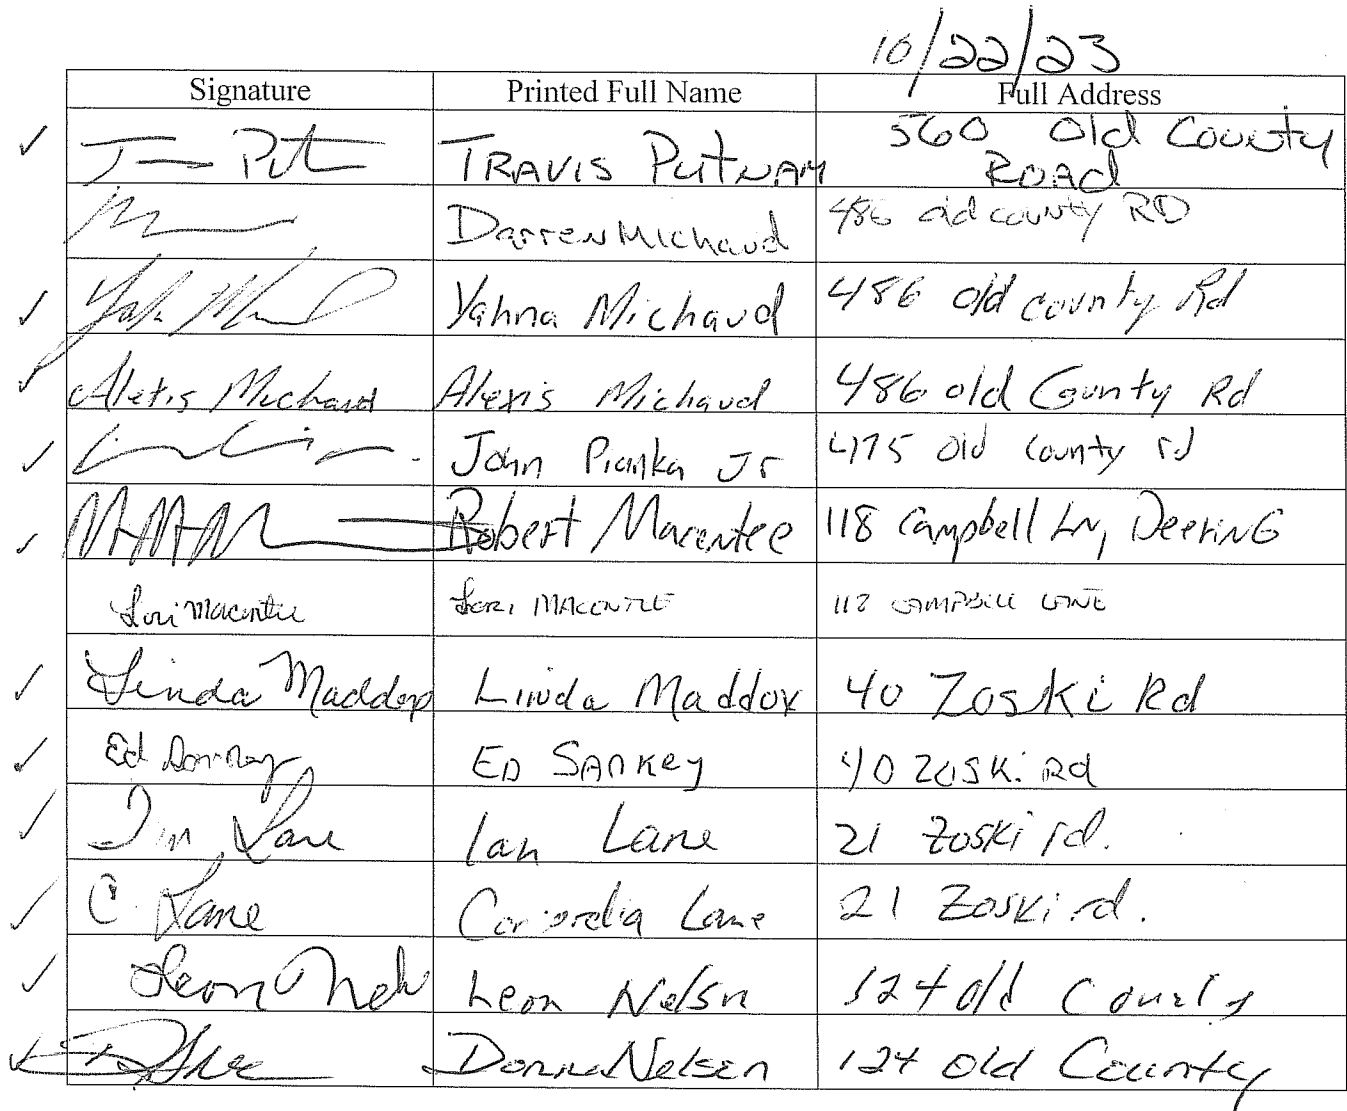 10/22/23
Signature Printed Full Name Full Address
TRAVIS PUTNAM 560 Old County Road
Darren Michaud 486 old county RD
Yahna Michaud 486 old county Rd
Alexis Michaud Alexis Michaud 486 old County Rd
John Pianka Jr 475 Old County rd
Robert Macentee 118 Campbell Ln, Deering
Lori Macentee LORI MACENTEE 118 CAMPBELL LANE
Linda Maddox Linda Maddox 40 Zoski Rd
Ed Sankey ED SANKEY 40 Zoski Rd
Ian Lane Ian Lane 21 Zoski rd.
C Lane Lane 21 Zoski rd.
Leon Leon Nelson 124 Old County
Donna Nelsen 124 Old County